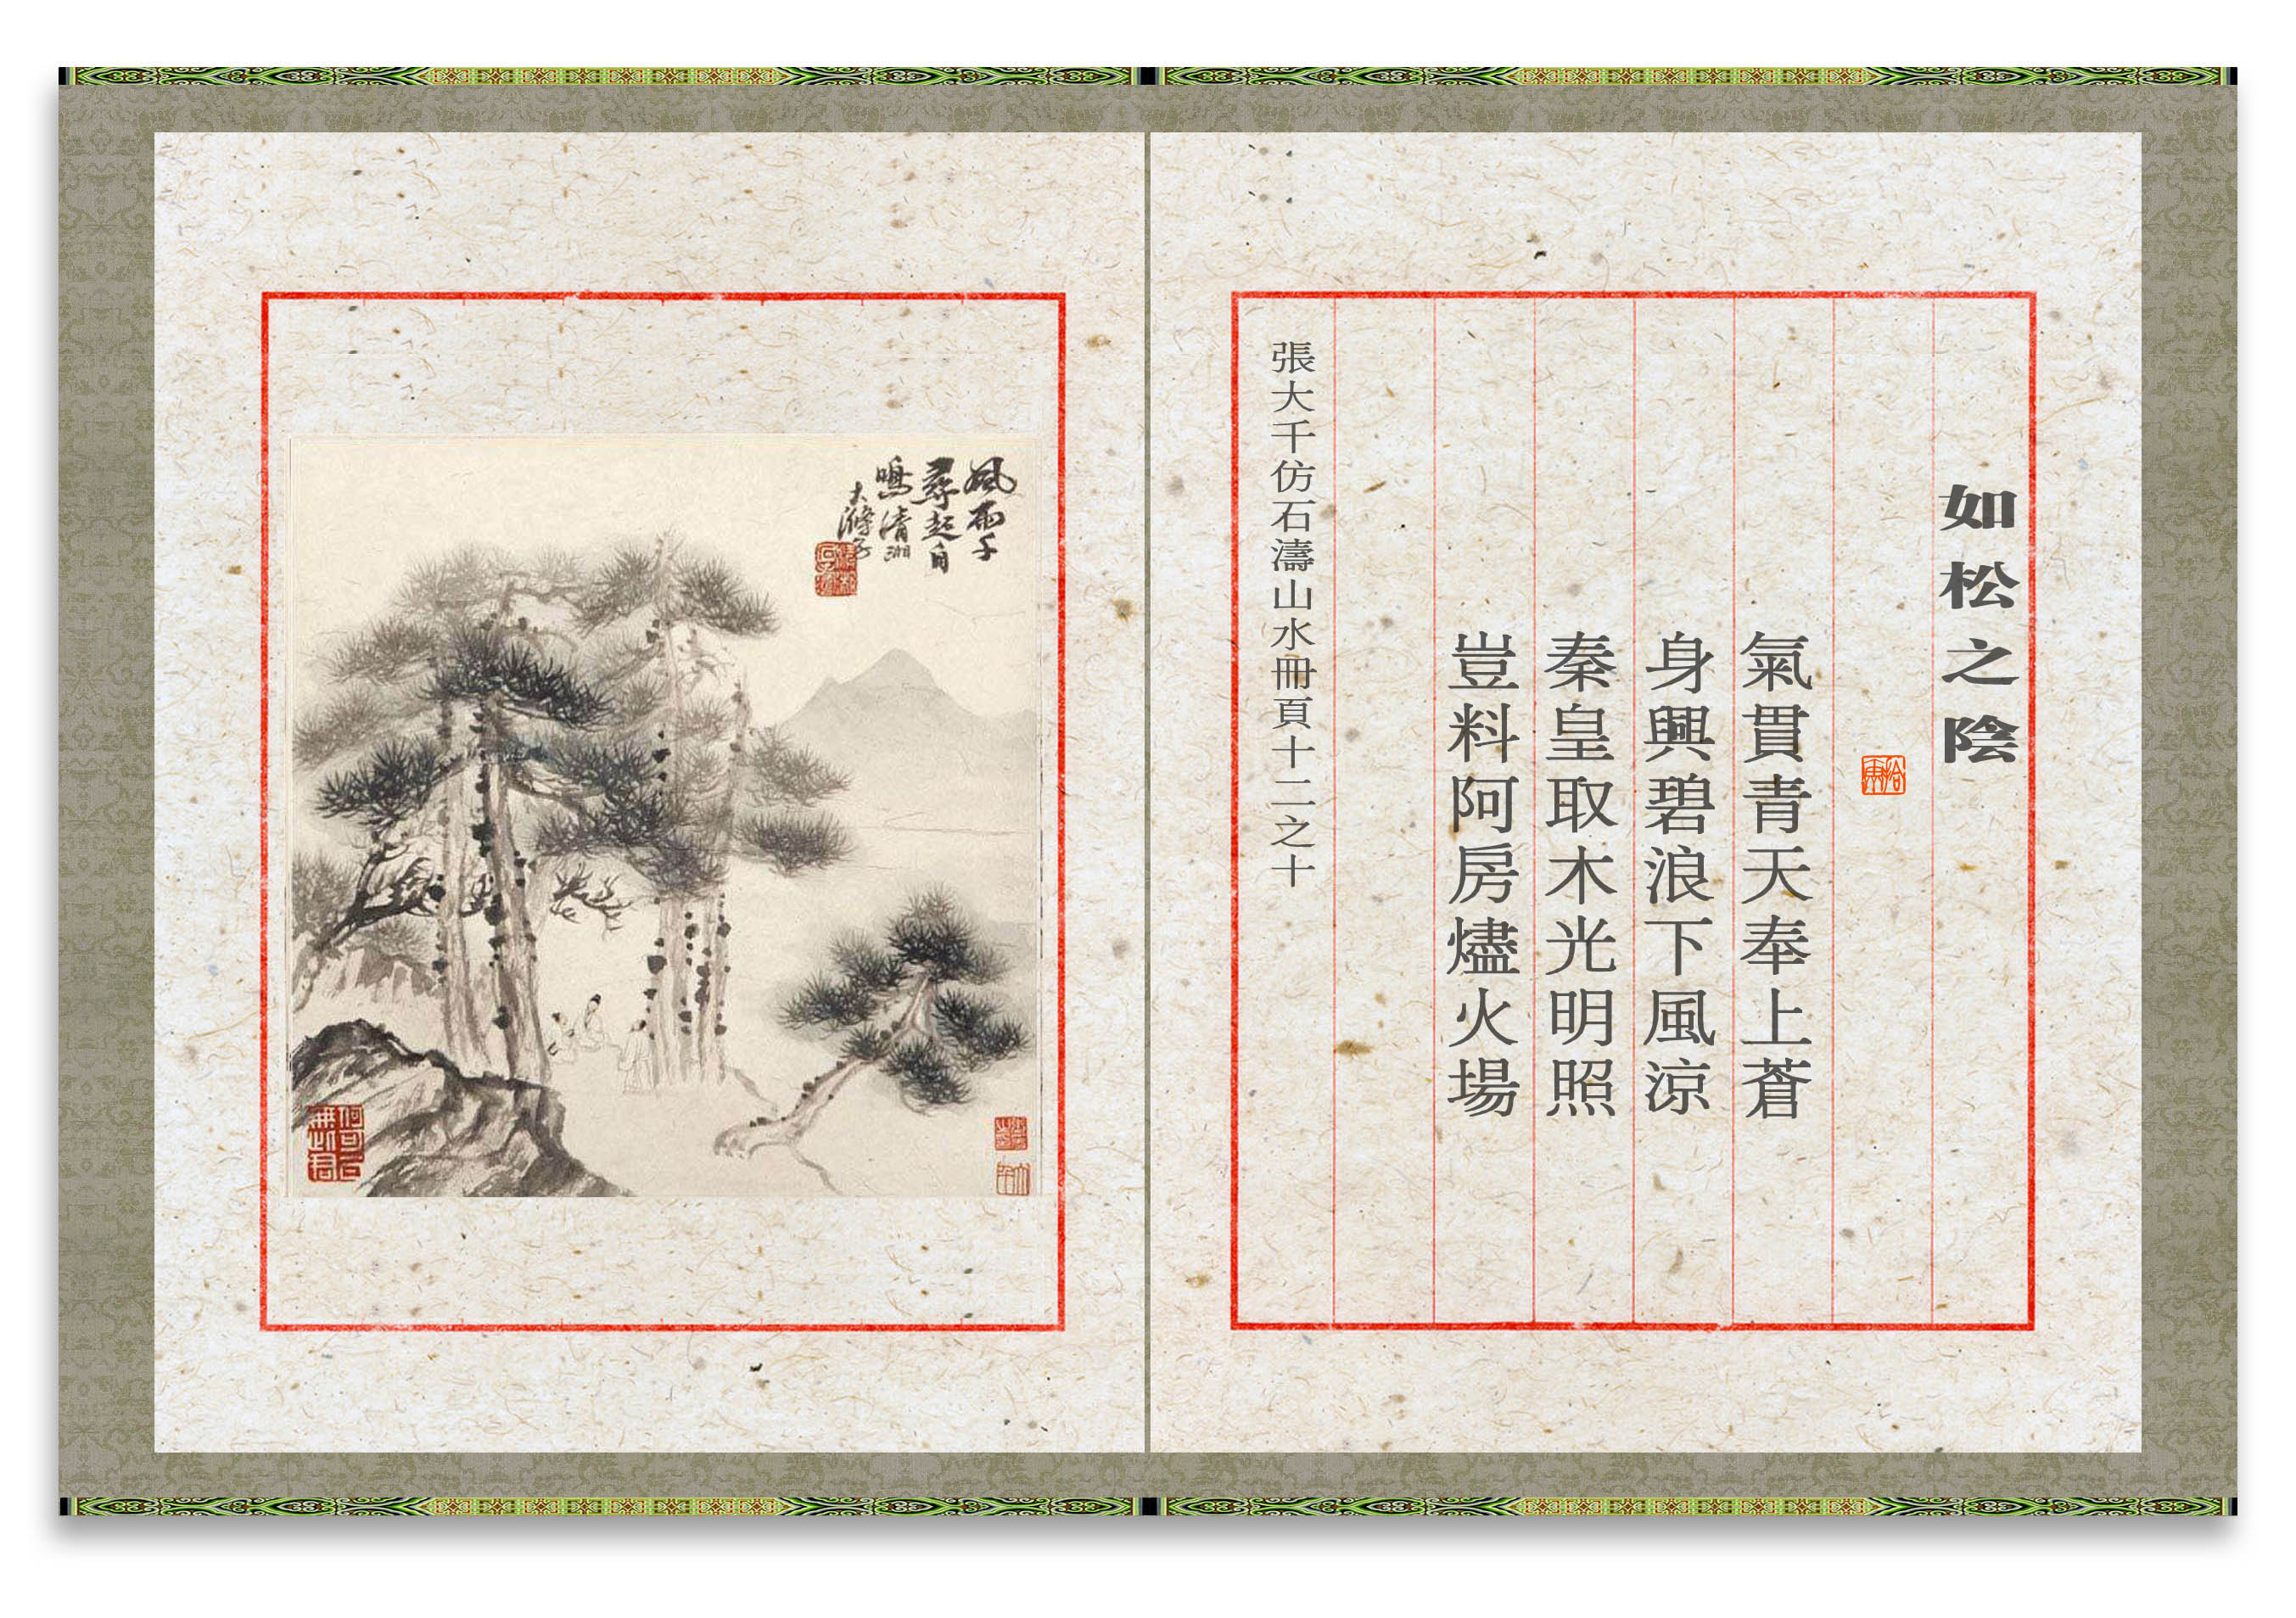 如松之陰
氣貫青天奉上蒼
身興碧浪下風涼
秦皇取木光明照
豈料阿房燼火場
張大千仿石濤山水冊頁十二之十
風雨千
尋起自
鳴清湘
大滌子